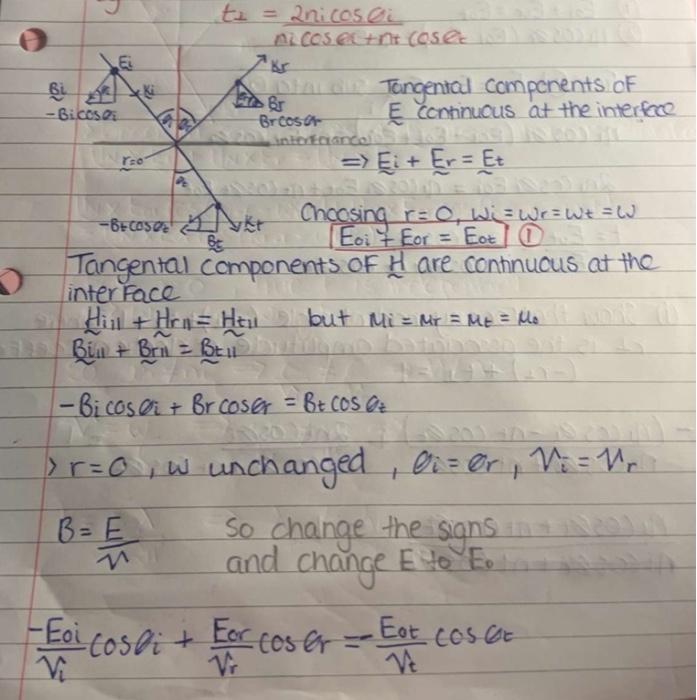 t⊥ = 2nicosθi
nicosθi+ntcosθt
Ei
Bi
Ki
-Bicosθi
θi
θr
Kr
Br
Brcosθr
interface
r=0
θt
-Btcosθt
Bt
Kt
Tangental components of
E continuous at the interface
=> Ei + Er = Et
Choosing r=0, wi=wr=wt=w
Eoi + Eor = Eot ①
Tangental components of H are continuous at the
interface
Hi|| + Hr|| = Ht|| but μi = μr = μt = μo
Bi|| + Br|| = Bt||
-Bicosθi + Brcosθr = Btcosθt
> r=0, w unchanged, θi=θr, Vi=Vr
B = E
V
So change the signs
and change E to Eo
-Eoi cosθi + Eor cosθr = -Eot cosθt
Vi Vr Vt